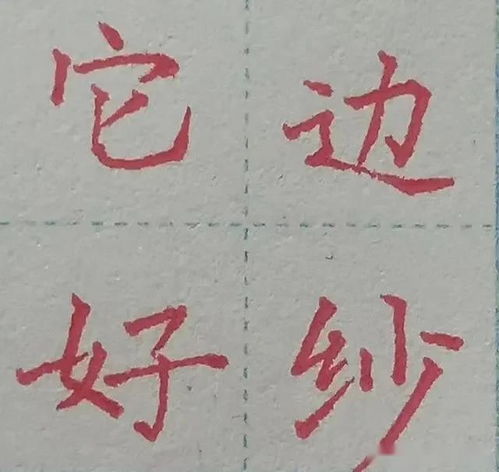 它边
好纱